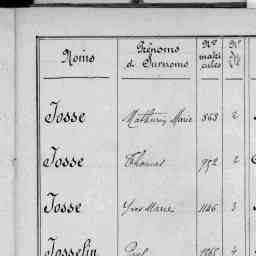 Noms Prénoms & Surnoms Nos matri cules Nos
Josse Mathurin Marie 868 2
Josse Thomas 952 2
Josse Yves Marie 1146 3
Josselin Paul 1165 4